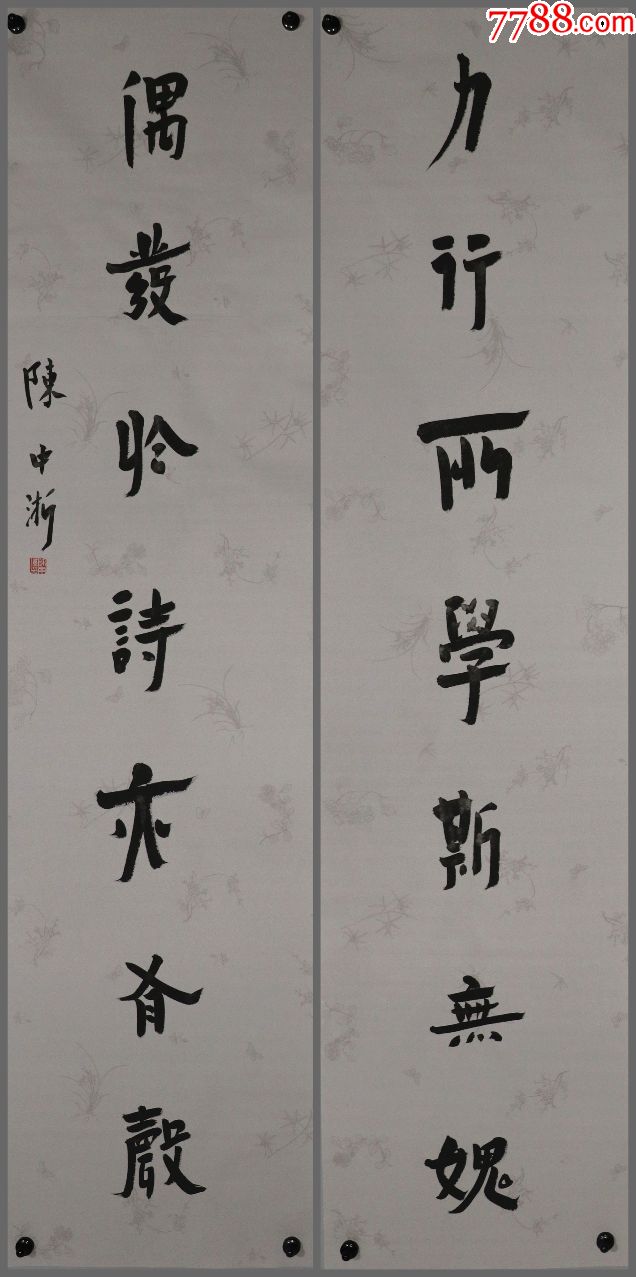 7788.com
力行所學斯無媿
偶發於詩亦有聲
陳中浙